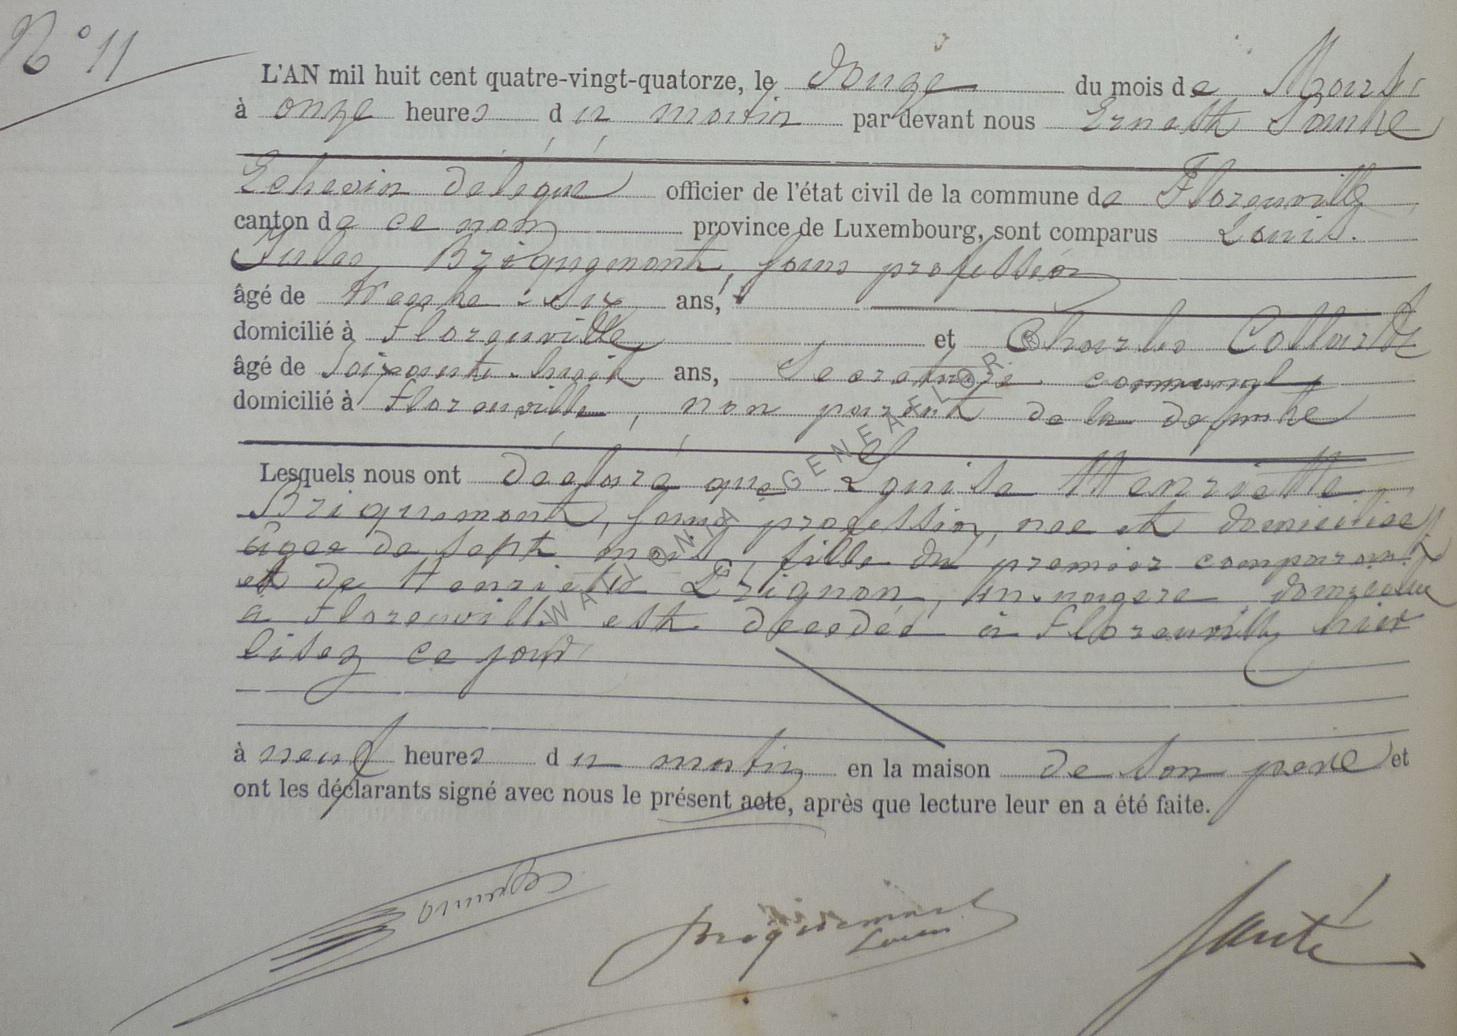 N° 11
L'AN mil huit cent quatre-vingt-quatorze, le douze du mois de Mars
à onze heures du matin par devant nous Ernest Santé
Echevin délégué officier de l'état civil de la commune de Florenville
canton de ce nom province de Luxembourg, sont comparus Louis
Jules Briquemont, sans profession
âgé de trente-six ans,
domicilié à Florenville et Charles Collard
âgé de soixante-huit ans, Secrétaire communal,
domicilié à Florenville, non parent de la defunte
Lesquels nous ont déclaré que Louise Henriette
Briquemont, sans profession, née et domiciliée
âgée de sept mois, fille du premier comparant
et de Henriette Grignon, menagère domiciliée
à Florenville est decedée à Florenville hier
lisez ce jour
à neuf heures du matin en la maison de son père et
ont les déclarants signé avec nous le présent acte, après que lecture leur en a été faite.
Briquemont Santé
Louis
GENEAFLOR